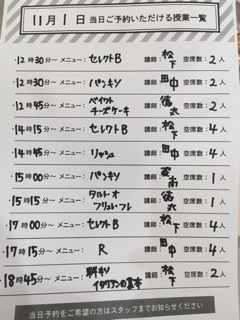 11月1日 当日ご予約いただける授業一覧
・12時30分～ メニュー：セレクトB 講師：松下 空席数：2人
・12時30分～ メニュー：パンキソ 講師：田中 空席数：2人
・12時45分～ メニュー：ベイクドチーズケーキ 講師： 空席数：2人
・14時15分～ メニュー：セレクトB 講師：松下 空席数：4人
・14時45分～ メニュー：リッシュ 講師：田中 空席数：4人
・15時00分～ メニュー：パンキソ 講師： 空席数：1人
・15時15分～ メニュー：タルト・オ・フリュイ・フレ 講師： 空席数：1人
・17時00分～ メニュー：セレクトB 講師：松下 空席数：4人
・17時15分～ メニュー：R 講師：田中 空席数：4人
・18時45分～ メニュー：料キソ イタリアンの基本 講師：松下 空席数：2人
当日予約をご希望の方はスタッフまでお知らせください